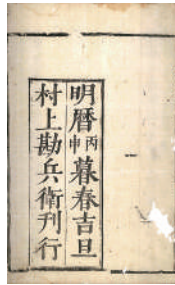 明暦丙申暮春吉旦
村上勘兵衛刊行